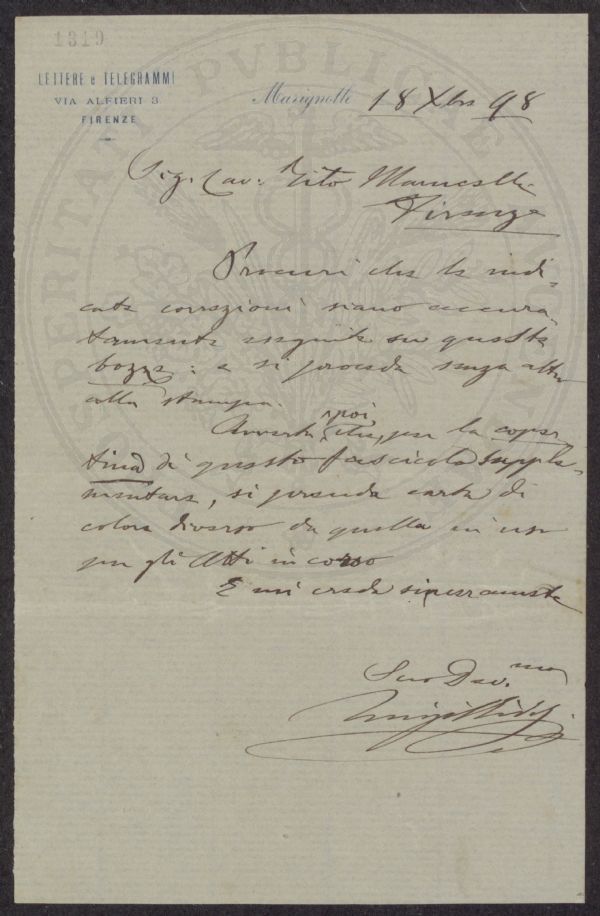 1319
LETTERE e TELEGRAMMI
VIA ALFIERI 3
FIRENZE
Marignolle 18 Xbre 98
Sig. Cav. Tito
Firenze
Procuri che le indi-
cate correzioni siano accura-
tamente eseguite su queste
bozze: e si proceda senza altro
alla stampa.
Avverta poi che, per la coper
tina di questo fascicolo supple-
mentare, si prenda carta di
colore diverso da quella in uso
per gli Atti in corso
E mi creda sinceramente
Suo Dev.mo
Luigi Ridolfi